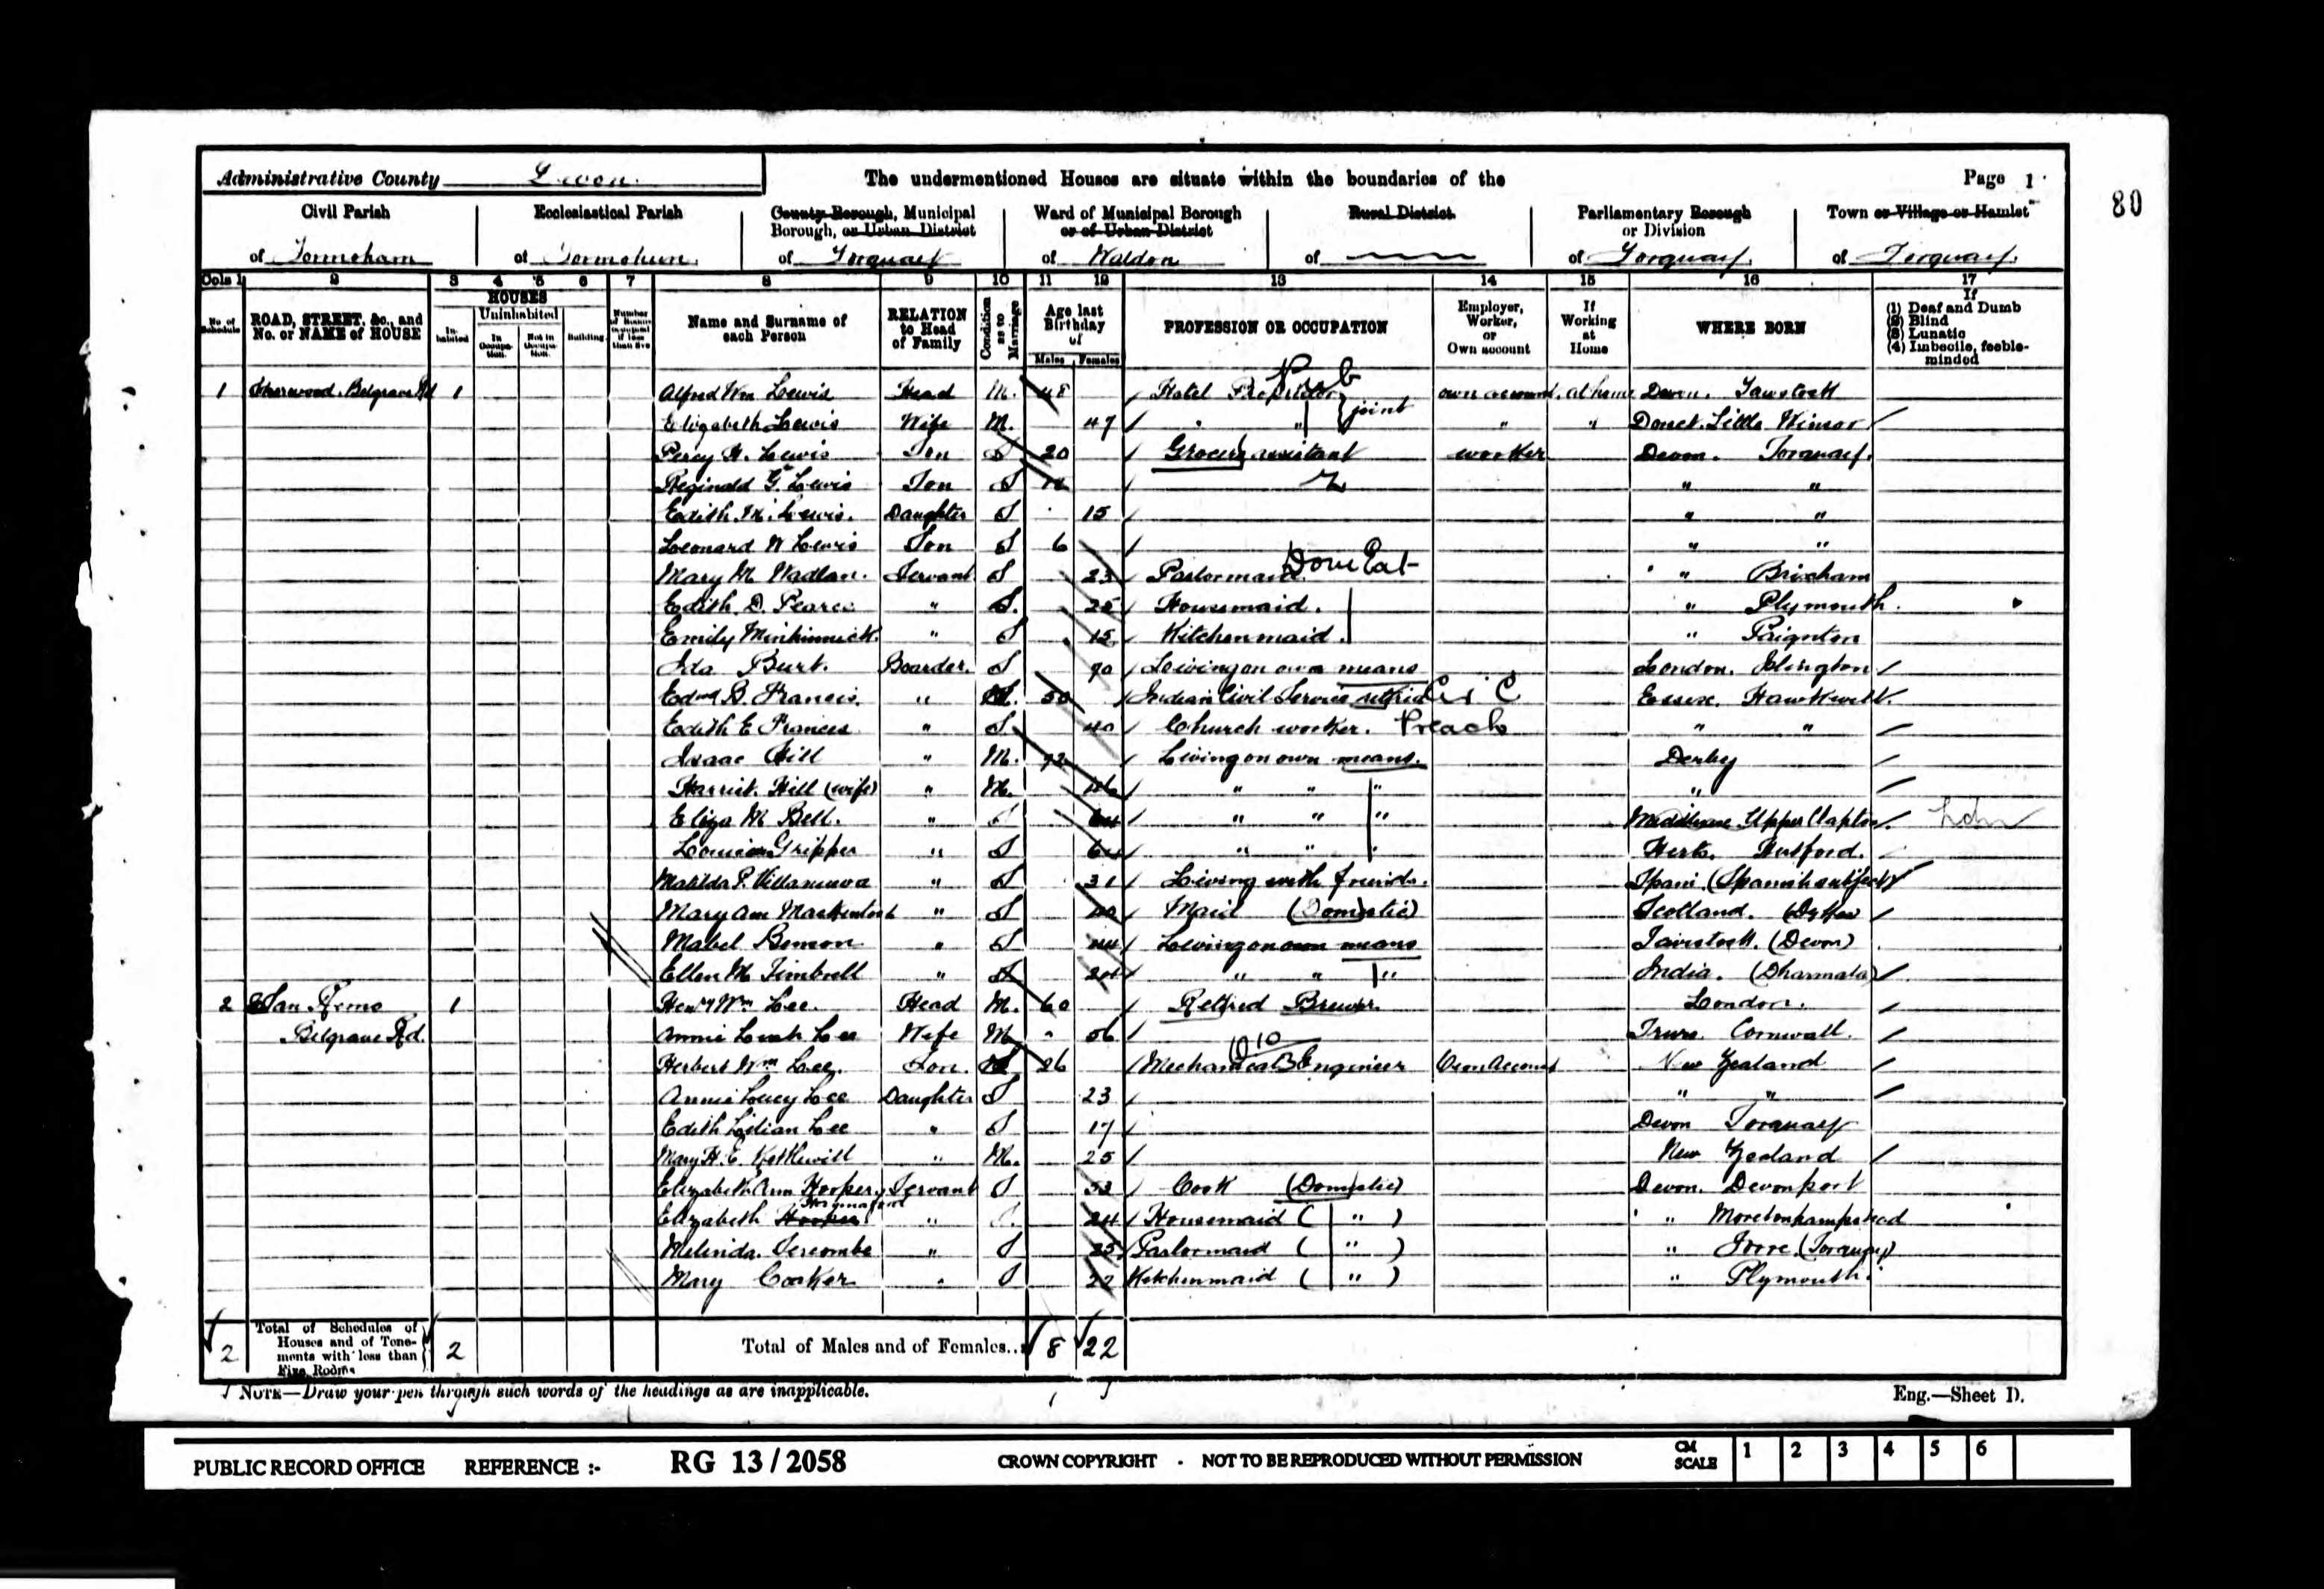 Administrative County Devon. The undermentioned Houses are situate within the boundaries of the Page 1
80
Civil Parish Ecclesiastical Parish County Borough, Municipal Borough, or Urban District Ward of Municipal Borough or of Urban District Rural District Parliamentary Borough or Division Town or Village or Hamlet
of Tormoham of Tormohun. of Torquay of Waldon of of Torquay. of Torquay.
Cols 1 2 3 4 5 6 7 8 9 10 11 12 13 14 15 16 17
No. of Schedule ROAD, STREET, &c., and No. or NAME of HOUSE HOUSES Inhabited Uninhabited In Occupation. Not in Occupation. Building. Number of Rooms occupied if less than five Name and Surname of each Person RELATION to Head of Family Condition as to Marriage Age last Birthday of Males Females PROFESSION OR OCCUPATION Employer, Worker, or Own account If Working at Home WHERE BORN If (1) Deaf and Dumb (2) Blind (3) Lunatic (4) Imbecile, feeble-minded
Pub
1 Belgrave Rd 1 Alfred Wm Lewis Head M. 48 Hotel Proprietor own account. at home Devon. Tawstock
Elizabeth Lewis Wife M. 47 " " } joint " " Dorset. Little Winsor
Percy H. Lewis Son S 20 Grocers assistant worker Devon. Torquay.
Reginald G. Lewis Son S " "
Edith M. Lewis. Daughter S 15 " "
Leonard W Lewis Son S 6 " "
Mary M. Servant S 23 Parlormaid. " Brixham
Edith. D. Pearce " S. 25 Housemaid. " Plymouth.
Emily Minhinnick. " S 15 Kitchenmaid. " Paignton
Ida Burt. Boarder. S 70 Living on own means London. Islington
Edwd B. Francis. " 50 Indian Civil Service retired Essex. Hawkwell.
Edith E Francis " S 40 Church worker. Preach " "
Isaac Hill " M. 72 Living on own means. Derby
Harriet. Hill (wife) " M. " " " "
Eliza M Bell. " S 64 " " " Middlesex Upper Clapton. Ldn
Gripper " S 64 " " " Herts. Hertford.
Matilda P. Villanueva " S 31 Living with friends. (Spanish subject)
Mary Ann Mackintosh " S 40 Maid (Domestic) Scotland.
Mabel Benson " S 44 Living on own means Tavistock. (Devon)
Ellen M. Timbrell " S " " " India. (Dharmsala)
2 San Remo 1 Heny Wm Lee. Head M. 60 Retired Brewer. London.
Belgrave Rd. Annie Leah Lee Wife M 56 Truro Cornwall.
Herbert Wm Lee. Son. S 26 Mechanical Engineer Own Account New Zealand
Annie Lucy Lee Daughter S 23 " "
Edith Lilian Lee " S 17 Devon Torquay
Mary H. E. Kettlewell " M. 25 New Zealand
Elizabeth Ann Hooper Servant S 53 Cook (Domestic) Devon. Devonport
Elizabeth Hooper " S. 24 Housemaid ( " ) " Moretonhampstead
Melinda. Sercombe " S 25 Parlormaid ( " ) " (Torquay)
Mary Coaker " S 22 Kitchenmaid ( " ) " Plymouth.
2 Total of Schedules of Houses and of Tenements with less than Five Rooms 2 Total of Males and of Females.. 8 22
NOTE—Draw your pen through such words of the headings as are inapplicable. Eng.—Sheet D.
PUBLIC RECORD OFFICE REFERENCE :- RG 13 / 2058 CROWN COPYRIGHT - NOT TO BE REPRODUCED WITHOUT PERMISSION CM SCALE 1 2 3 4 5 6